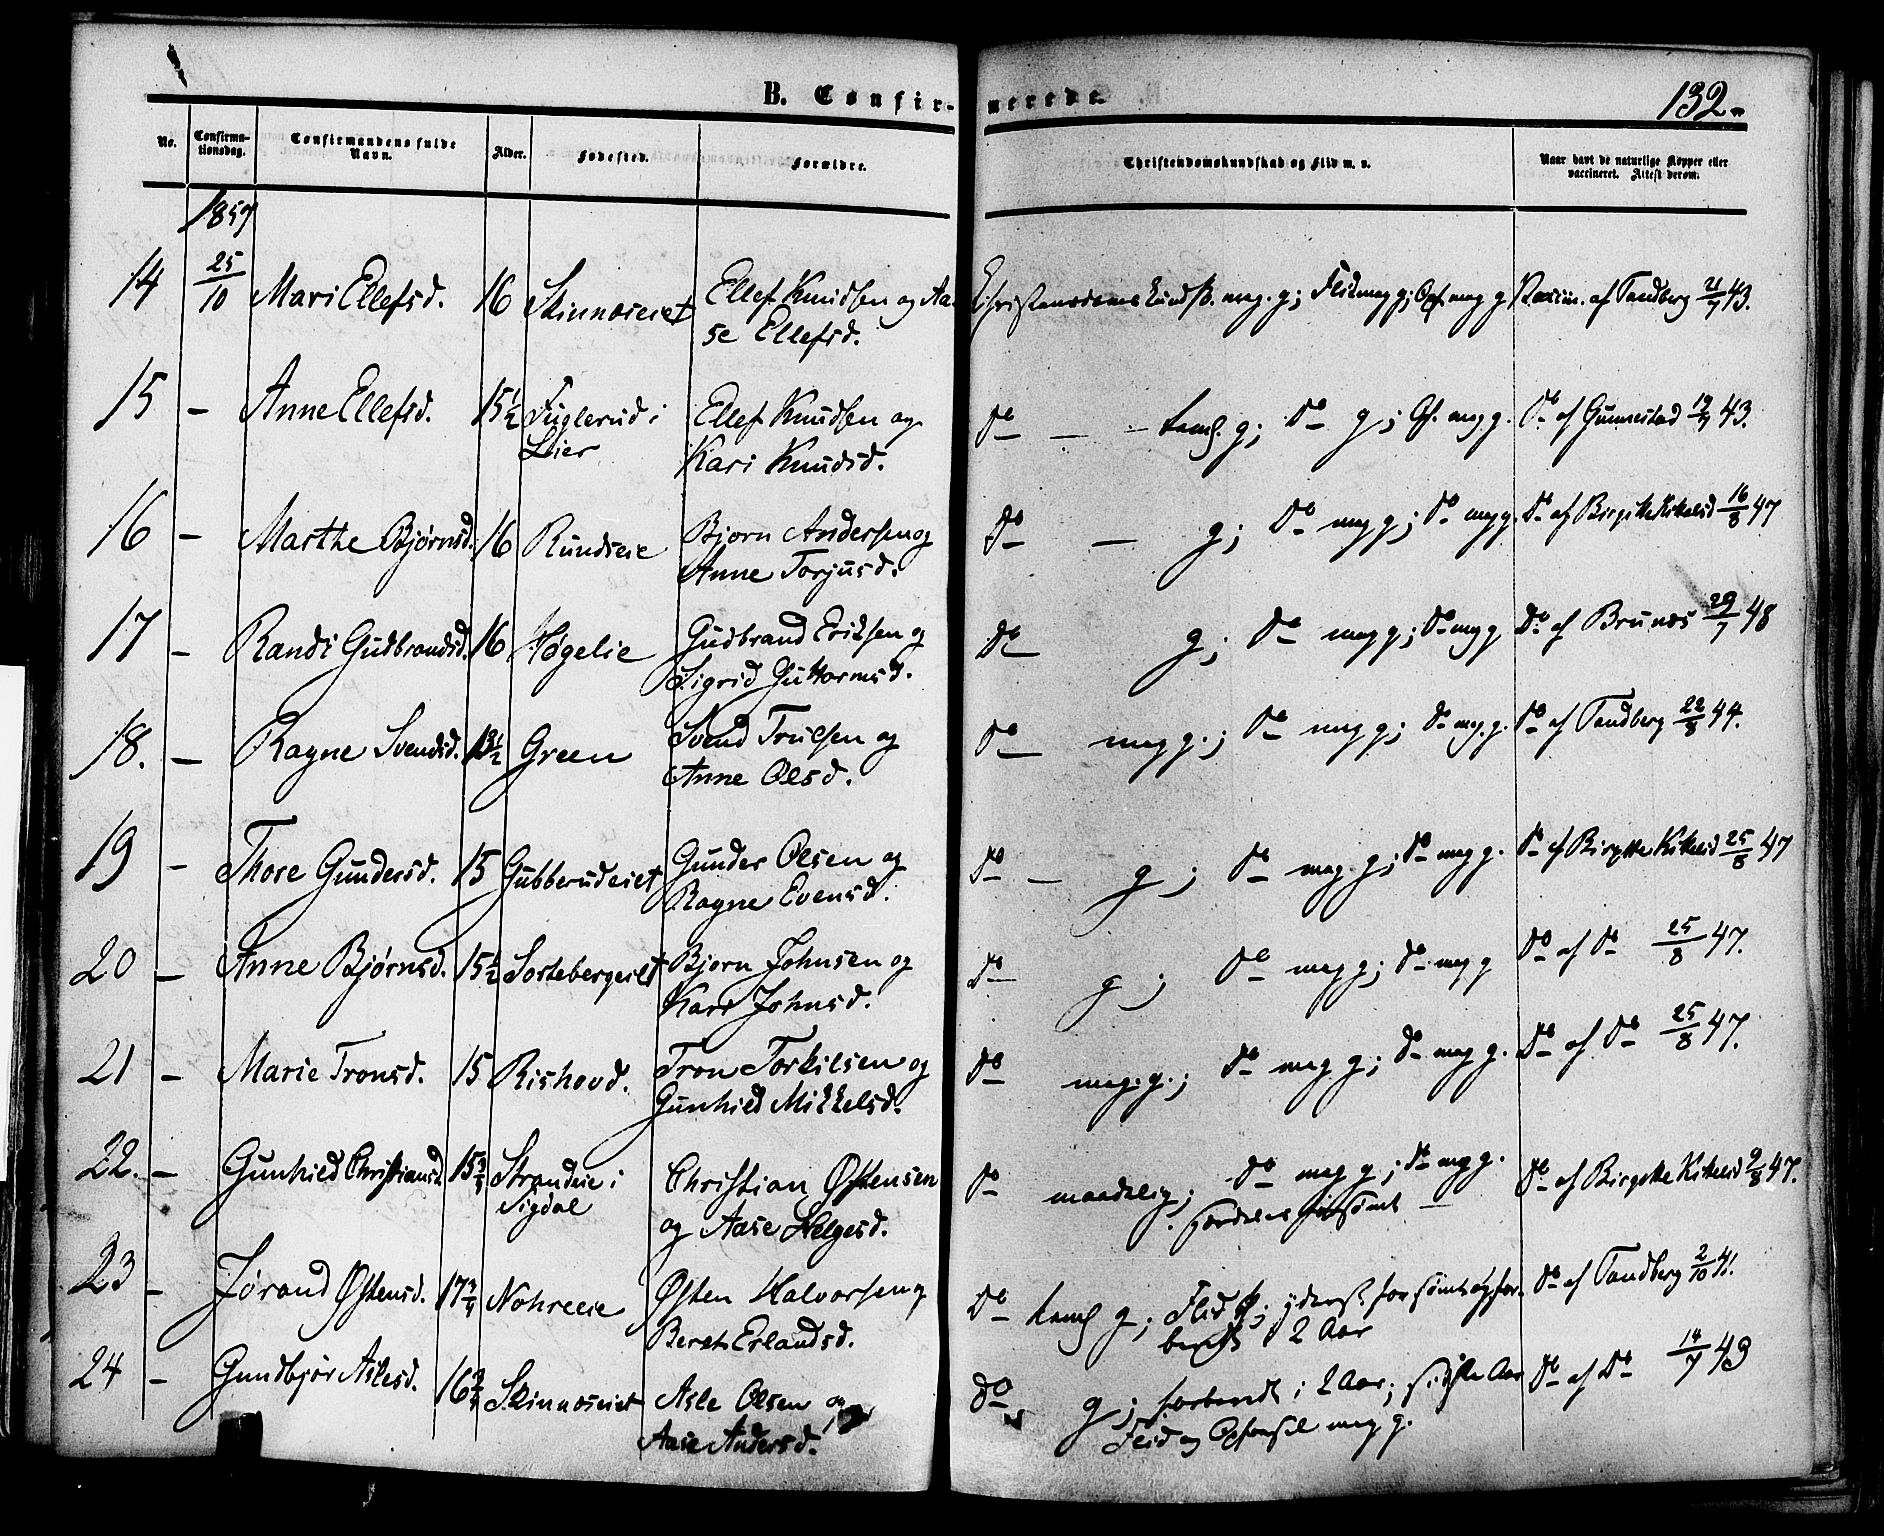 B. Confirmerede. 132.
No. Confirmationsdag. Confirmandens fulde Navn. Alder. Fødested. Forældre. Christendomskundskab og Flid m. v. Naar havt de naturlige Kopper eller vaccineret. Attest derom.
1857
14 25/10 Mari Ellefsd. 16 Skinnæseiet Ellef Knudsen og Aa- Christendomskundsk. meg. g; Flid meg g; Opf. meg g Vaccin. af Tandberg 21/7 43.
se Ellefsd.
15 – Anne Ellefsd. 15 1/2 Fuglerud i Ellef Knudsen og Do – – teml. g; Do g; Opf. meg g. Do af Gunnestad 19/9 43.
Lier Kari Knudsd.
16 – Marthe Bjørnsd. 16 Rundseie Bjorn Andersen og Do – g; Do meg g; Do meg g. Do af Birgitte Kikelsd 16/8 47
Anne Torjusd.
17 – Randi Gudbrandsd. 16 Høgelie Gudbrand Eriksen og Do g; Do meg g; Do meg g Do af Brunæs 29/7 48
Sigrid Guttormsd.
18. – Ragne Svendsd. Green Svend Trulsen og Do meg g.; Do meg g; Do meg. g. Do af Tandberg 22/8 44.
Anne Olsd.
19 – Thore Gundersd. 15 Gubberudeiet Gunder Olsen og Do – g; Do meg. g; Do meg g. Do af Birgitte Kikelsd 25/8 47
Ragne Evensd.
20 – Anne Bjørnsd. 15 1/2 Sortebergeiet Bjorn Johnsen og Do g; Do meg g; Do meg g Do af Do 25/8 47.
Kari Johnsd.
21 – Marie Tronsd. 15 Rishovd. Tron Torkilsen og Do meg. g.; Do meg g; Do meg g. Do af Do 25/8 47.
Gunhild Mikkelsd.
22. – Gunhild Christiansd. 15 Strandeie i Christian Østensen Do maadelig; Do meg g; Do meg g. Do af Birgitte Kikelsd 9/8 47.
Sigdal og Aase Helgesd.
23 – Jørand Østensd. 17 3/4 Nohreeie Østen Halvorsen og Do teml g; Flid g; ydersk. forsømt og for- Do af Tandberg 2/10 41.
Berth Erlandsd. beredt 2 Aar
24 – Gundbjør Aslesd. 16 Skinnæseiet Asle Olsen og Do g; forberedt i 2 Aar; sidste Aar Do af Do 14/7 49
Aase Andersd. Flid og Opførsel meg g.